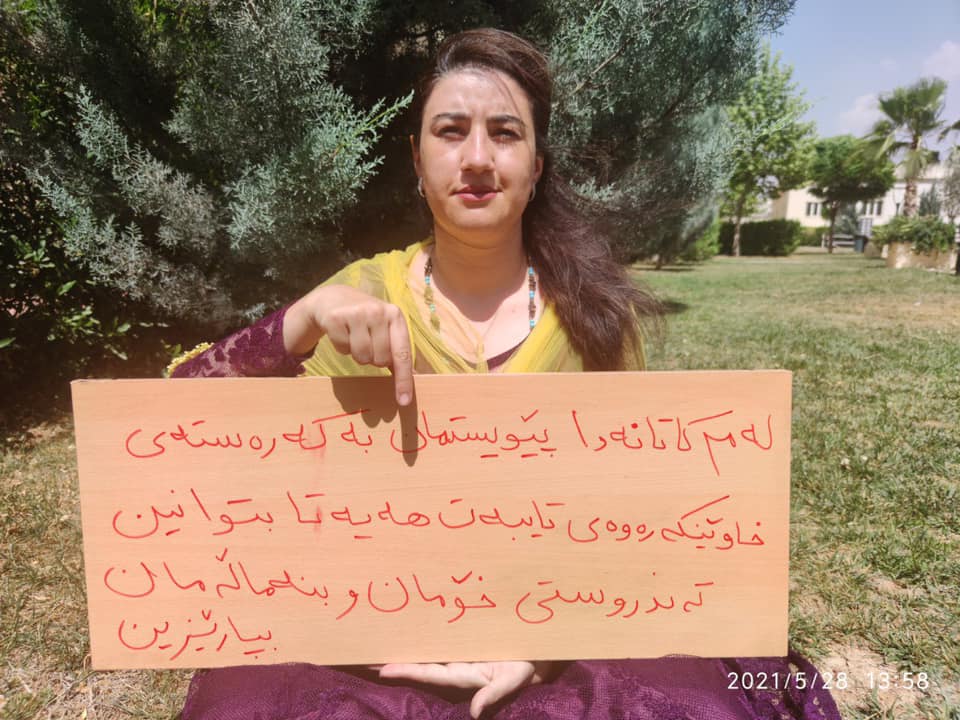 لەم کاتانەدا پێویستمان بە کەرەستەی
خاوێنکەرەوەی تایبەت هەیە تا بتوانین
تەندروستی خۆمان و بنەماڵەمان
بپارێزین
2021/5/28 13:58